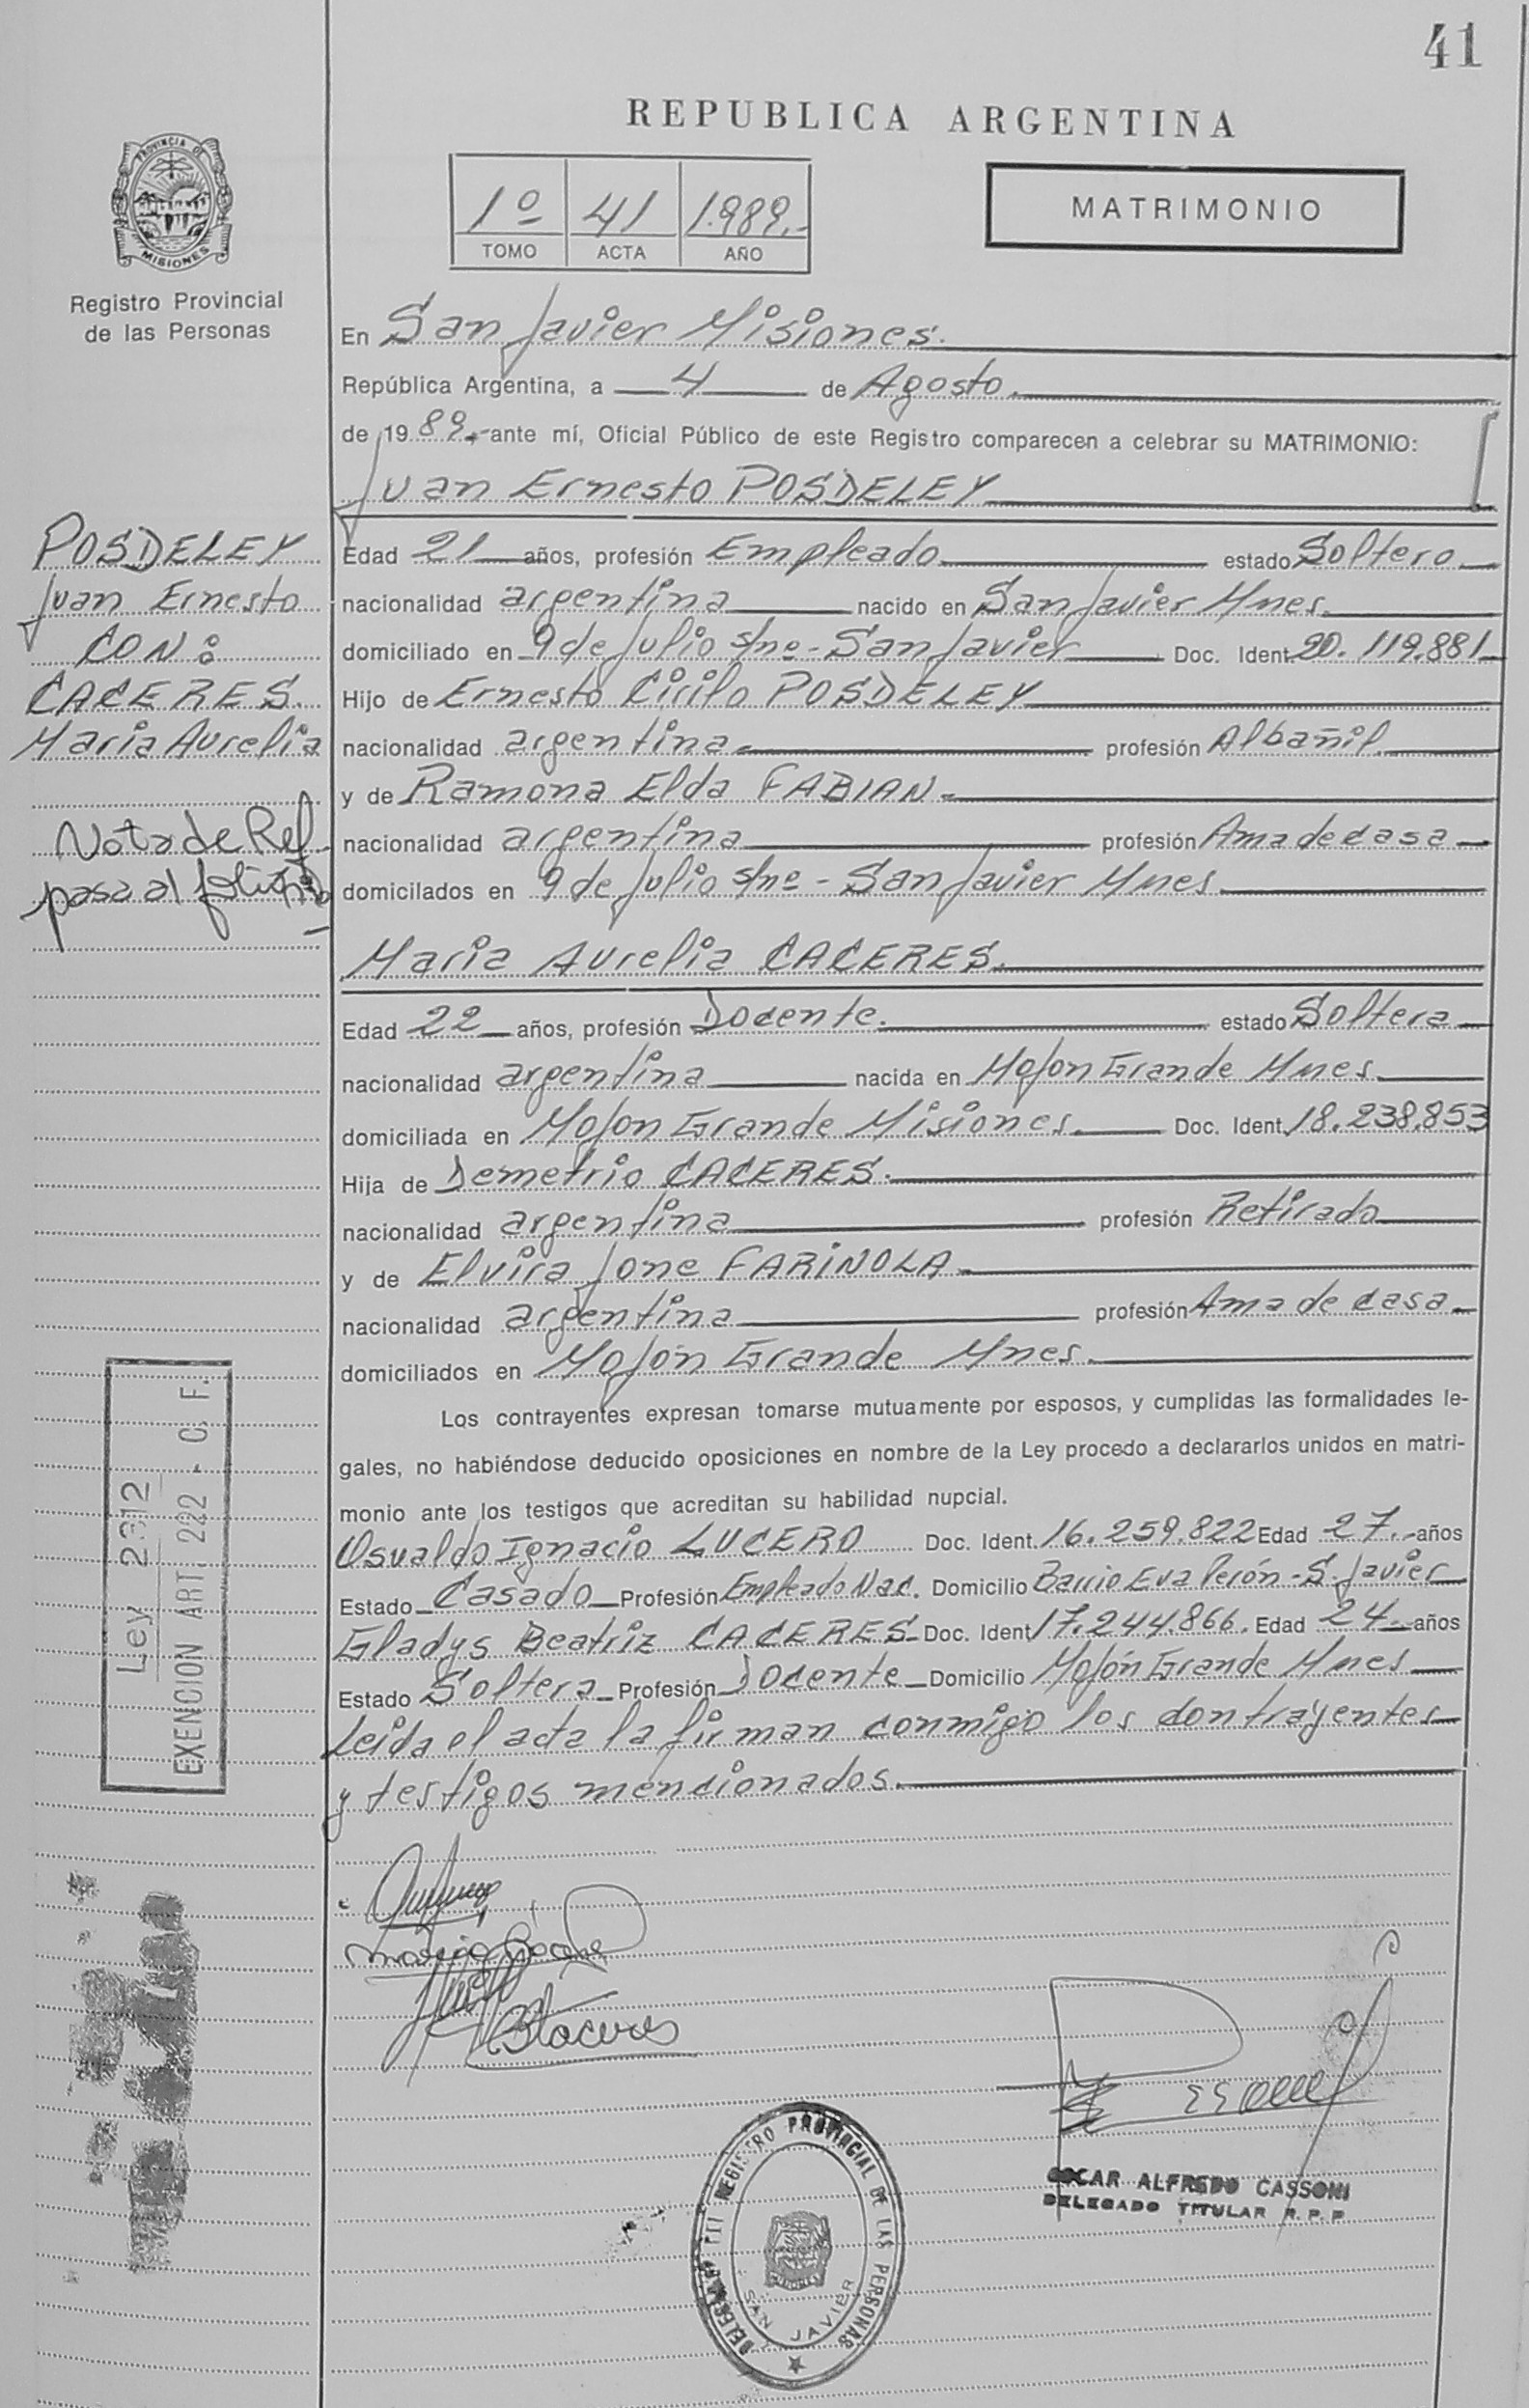 41
REPUBLICA ARGENTINA
PROVINCIA DE
MISIONES
Registro Provincial
de las Personas
1º 41 1.989.-
TOMO ACTA AÑO
MATRIMONIO
En San Javier Misiones.
República Argentina, a 4 de Agosto.
de 19 89.- ante mí, Oficial Público de este Registro comparecen a celebrar su MATRIMONIO:
Juan Ernesto POSDELEY
POSDELEY
Juan Ernesto
CON:
CACERES.
Maria Aurelia
Nota de Ref.
pasa al folio
Edad 21 años, profesión Empleado estado Soltero
nacionalidad argentina nacido en San Javier Mnes.
domiciliado en 9 de Julio s/nº - San Javier Doc. Ident. 20.119.881
Hijo de Ernesto Cirilo POSDELEY
nacionalidad argentina profesión Albañil
y de Ramona Elda FABIAN.
nacionalidad argentina profesión Ama de casa
domicilados en 9 de Julio s/nº - San Javier Mnes.
Maria Aurelia CACERES.
Edad 22 años, profesión Docente. estado Soltera
nacionalidad argentina nacida en Mojon Grande Mnes
domiciliada en Mojon Grande Misiones. Doc. Ident. 18.238.853
Hija de Demetrio CACERES.
nacionalidad argentina profesión Retirado
y de Elvira Jone FARiNOLA
nacionalidad argentina profesión Ama de casa
domiciliados en Mojón Grande Mnes.
Los contrayentes expresan tomarse mutuamente por esposos, y cumplidas las formalidades le-
gales, no habiéndose deducido oposiciones en nombre de la Ley procedo a declararlos unidos en matri-
monio ante los testigos que acreditan su habilidad nupcial.
Osvaldo Ignacio LUCERO Doc. Ident. 16.259.822 Edad 27.- años
Estado Casado Profesión Empleado Nac. Domicilio Barrio Eva Perón - S. Javier
Gladys Beatriz CACERES Doc. Ident 17.244.866. Edad 24 años
Estado Soltera Profesión Docente Domicilio Mojón Grande Mnes
Leida el acta la firman conmigo los contrayentes
y testigos mencionados.
Ley 2312
EXENCION ART. 222 - C. F.
Maria
BCaceres
OSCAR ALFREDO CASSONI
DELEGADO TITULAR R.P.P
REGISTRO PROVINCIAL DE LAS PERSONAS
SAN JAVIER